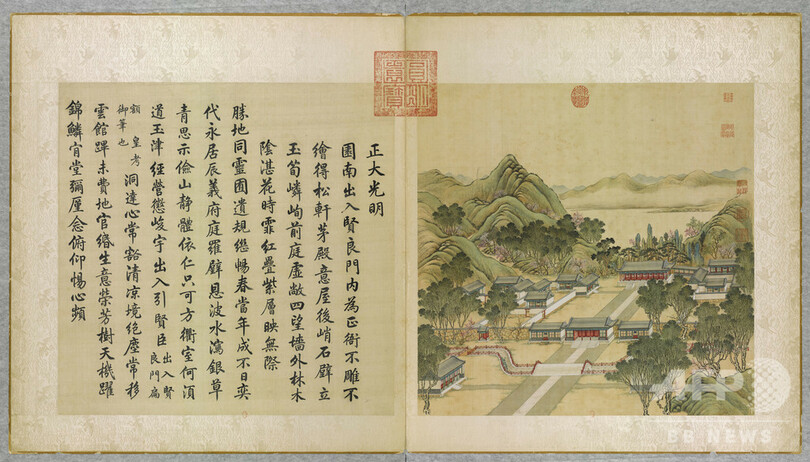 正大光明
園南出入賢良門内為正衙不雕不
繪得松軒茅殿意屋後峭石壁立
玉筍嶙峋前庭虛敞四望墻外林木
陰湛花時霏紅疊紫層映無際
勝地同靈囿遺規繼暢春當年成不日奕
代永居辰義府庭羅壁恩波水瀉銀草
青思示儉山静體依仁只可方衢室何須
道玉津經營懲峻宇出入引賢臣出入賢良門扁
額皇考御筆也洞達心常豁清凉境絕塵常移
雲館蹕未費地官緡生意榮芳樹天機躍
錦鱗肯堂彌厪念俯仰惕心頻
AFP
BB NEWS